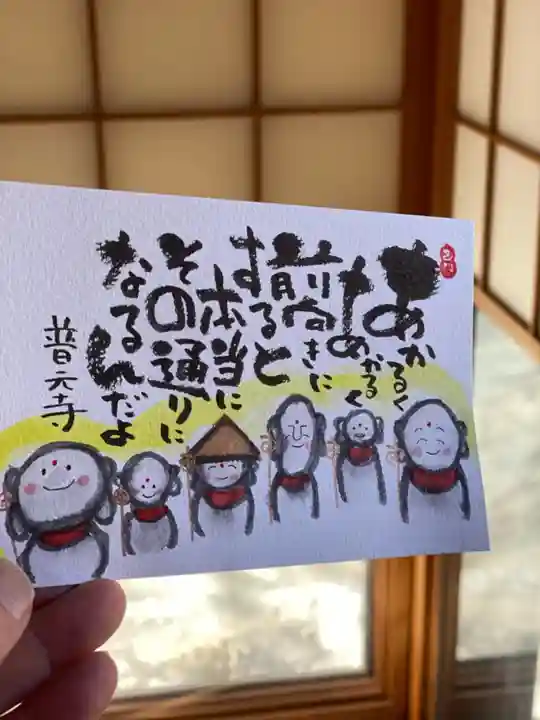 あかるく
あかるく
前向きに
すると
本当に
その通りに
なるんだよ
普元寺